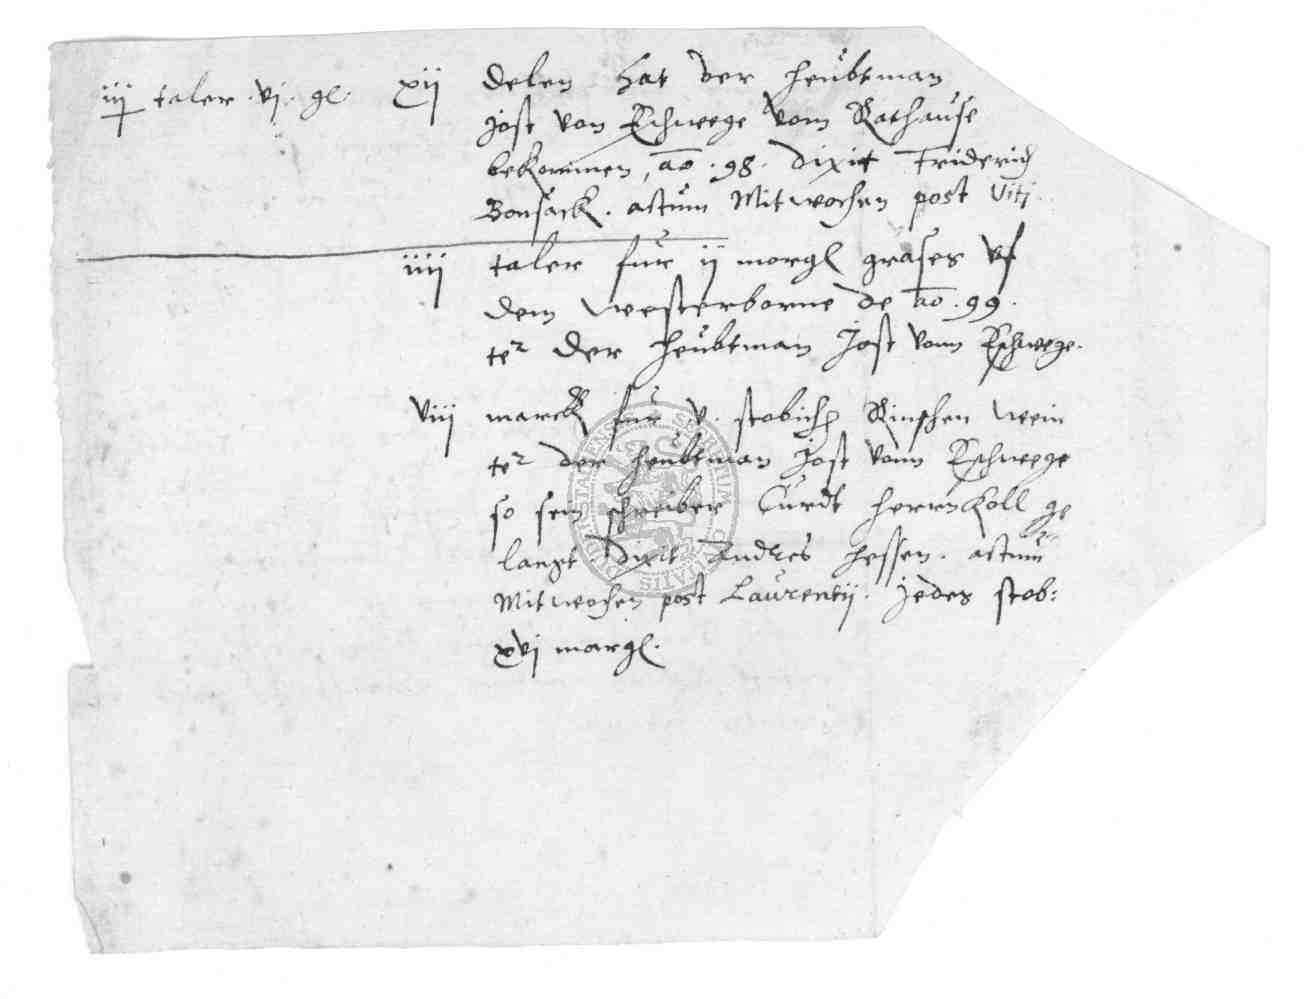 iij taler . vj . gl. xij delen hat der heübtman
Jost von Eschwege vom Rathause
bekommen, ao . 98 . dixit Friderich
Bonsack . actum Mitwochen post Viti
iiij taler für ij morgl grases vf
dem Westerborne de ao . 99 .
ter der heübtman Jost vonn Eschwege .
viij marck für v . stobich Rinschen wein
ter der heübtman Jost vonn Eschwege
so sein schreiber Curdt herrnkoll ge
langt dixit Andres Hessen . actum
Mitwochen post Laurentij . Jedes stob:
xvj margl .